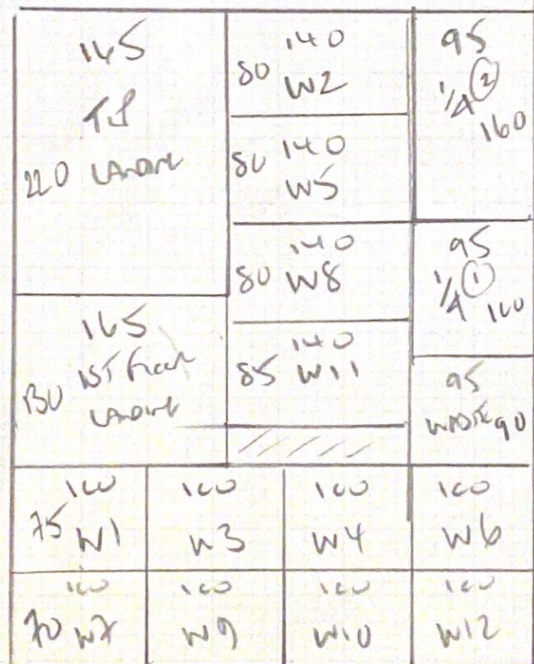 165
220 LANDING
165
130 1ST FLOOR
LANDING
140
80 W2
140
80 W5
140
80 W8
140
85 W11
95
1/4 ②
160
95
1/4 ①
100
95
WASTE 90
100
75 W1
100
W3
100
W4
100
W6
100
70 W7
100
W9
100
W10
100
W12